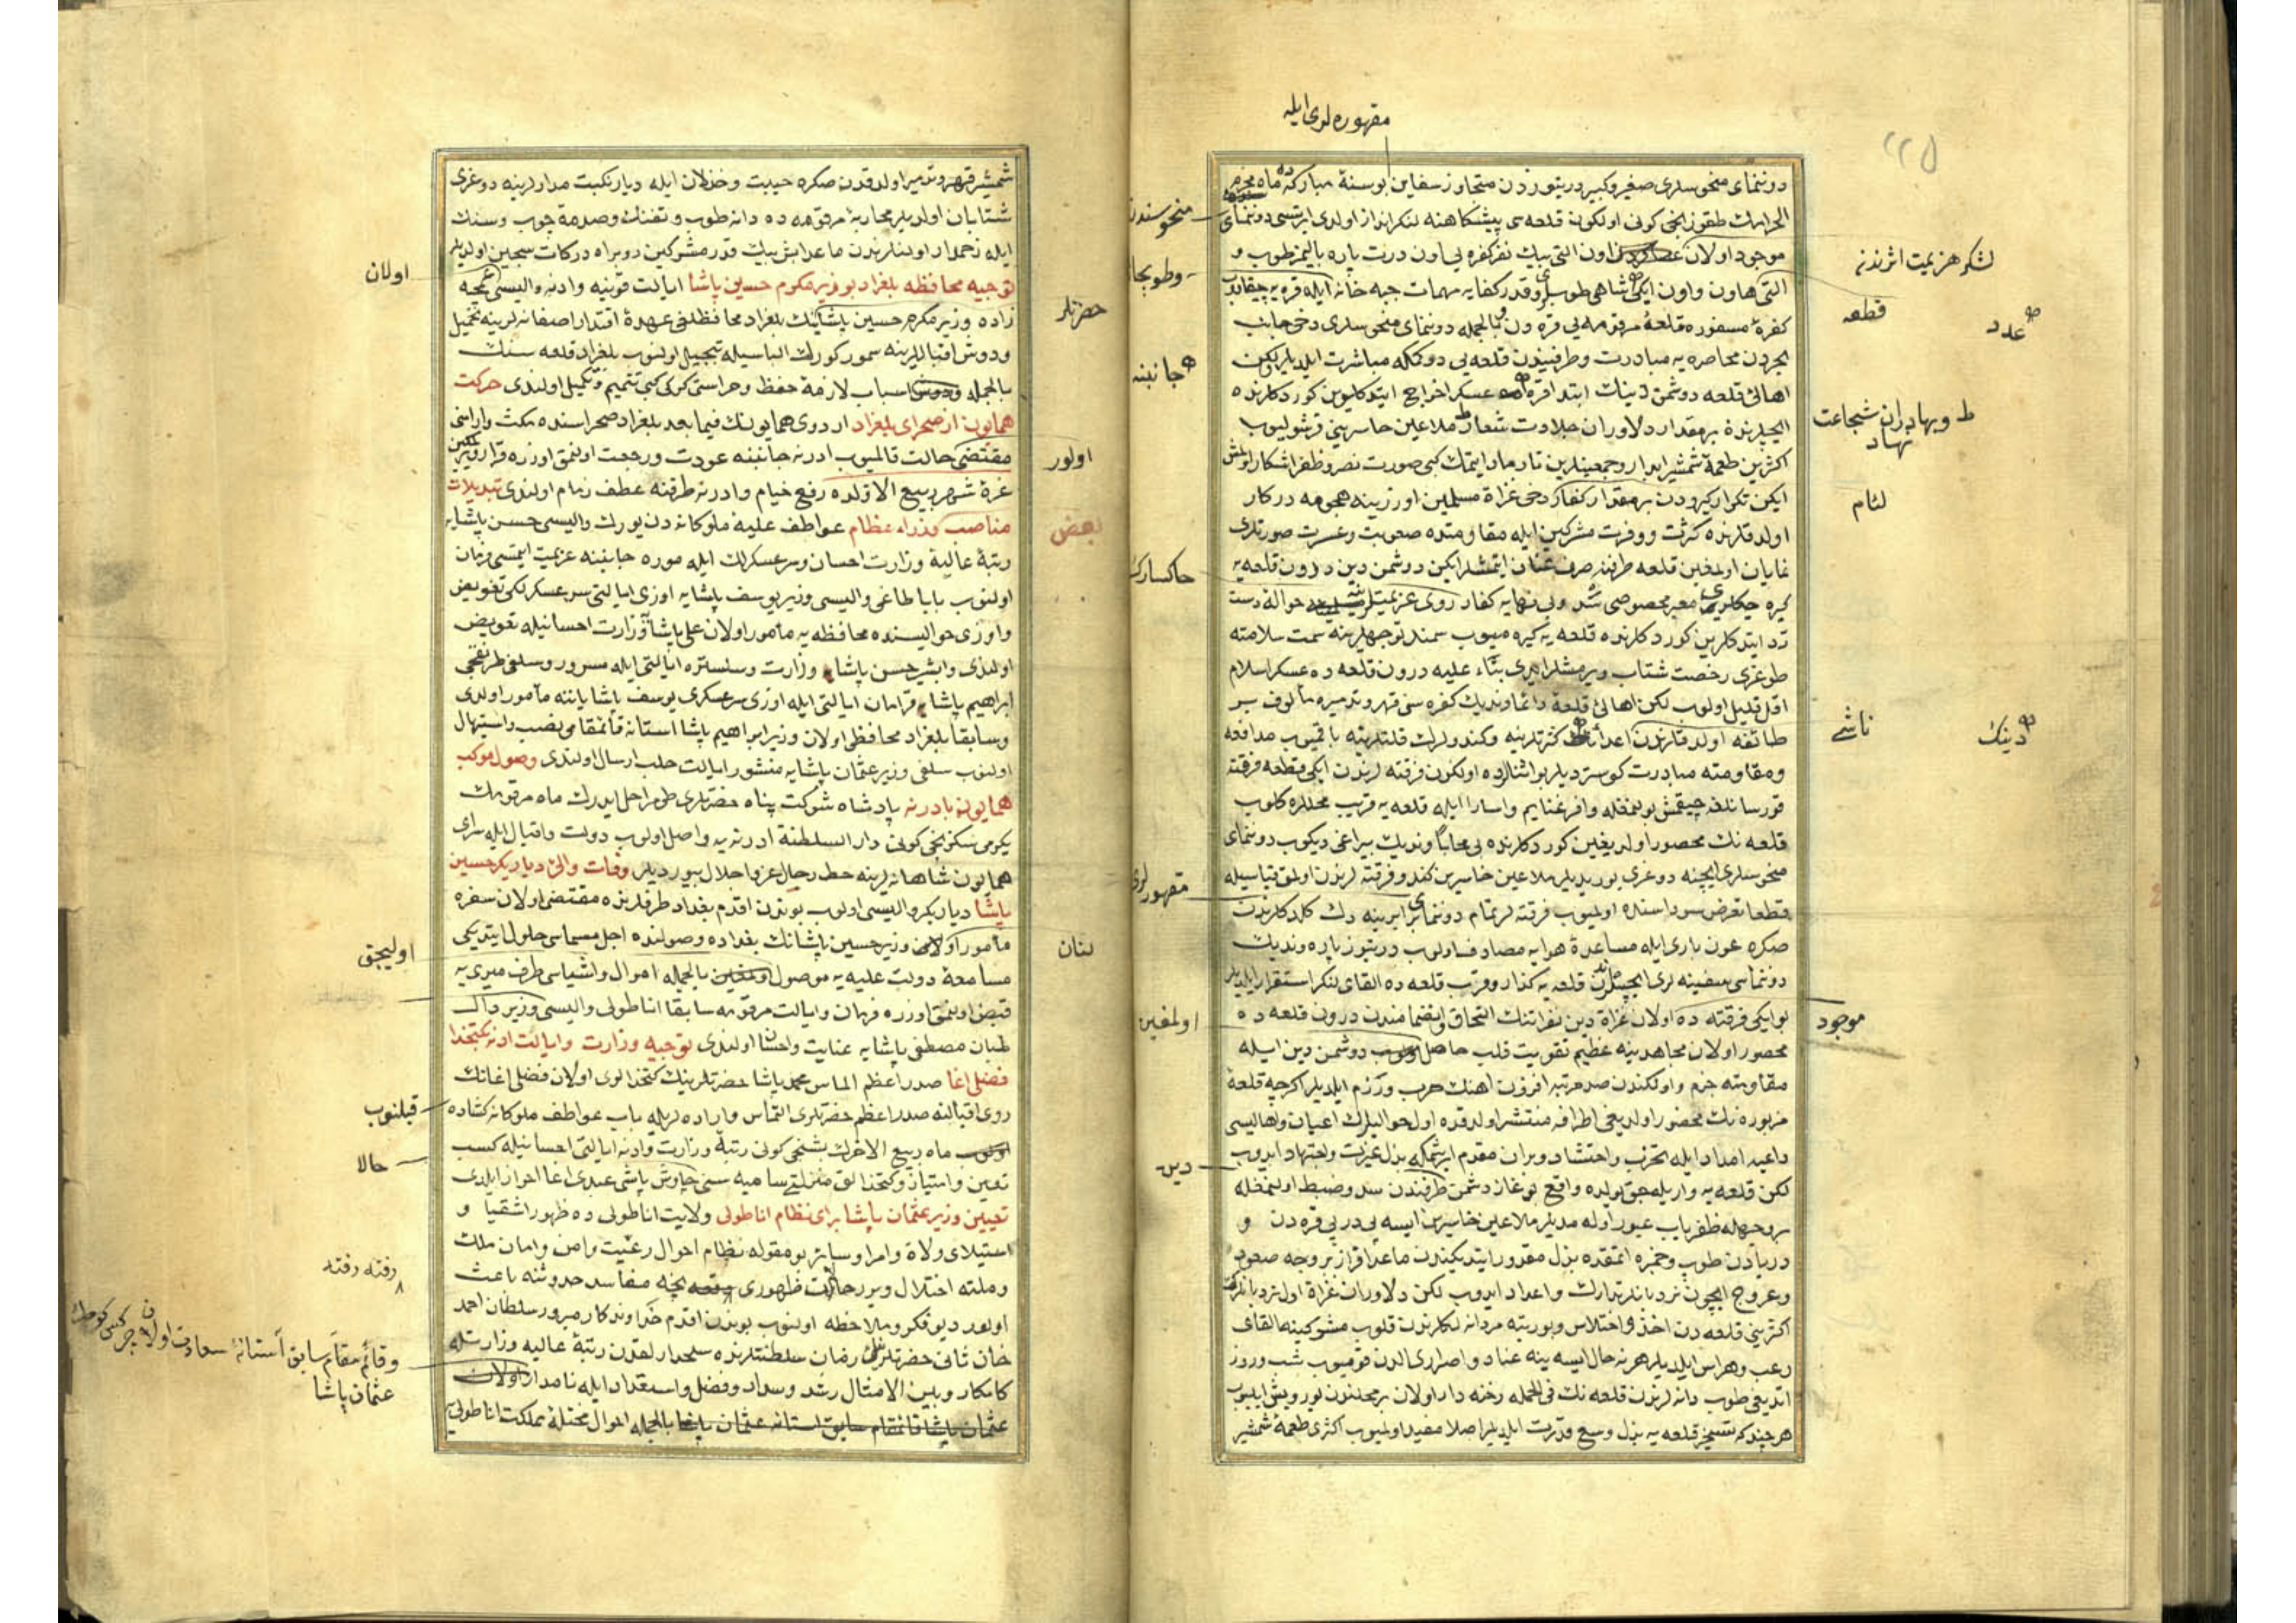 مقهوره‌لری ایله
دوننمای منحوسلری صغیر و کبیر دریتوزدن متجاوز سفاین بو سنهٔ مبارکه ماه محرم
الحرامك طقوزنجی کونی اولکون قلعه‌سی پیشکاهنه لنکرانداز اولدی ایرتسی دوننمای
موجود اولان اون التی بیك نفر کفره‌یی اون درت پاره بالیمز طوب و
التی هاون و اون ایکی شاهی طوبلری وقدر کفایه مهمات جبه خانه ایله قره‌یه چیقاروب
کفرهٔ مسفوره قلعهٔ مرقومه‌یی قره‌دن و بالجمله دوننمای منحوسلری دخی جانب
بحردن محاصره‌یه مبادرت وطرفیندن قلعه‌یی دوکمکه مباشرت ایلدیلر لکن
اهالئ قلعه دوشمن دینك ابتدا قره‌یه عسکر اخراج ایتدکلرین کوردکلرنده
ایچلرنده بر مقدار دلاوران جلادت شعار ملاعین خاسرینی قرشولیوب
اکثرین طعمهٔ شمشیر ابدار و جمعیتلرین تارمار ایتمك کبی صورت نصر وظفر اشکار اولمش
ایکن تکرار کیرودن بر مقدار کفار دخی غزاة مسلمین اوزرینه هجومه درکار
اولدقلرنده کثرت و وفرت مشرکین ایله مقاومتده صعوبت وعسرت صورتلری
نمایان اولمغین قلعه طرفنه صرف عنان ایتمشلر ایکن دوشمن دین درون قلعه‌یه
کیره جکلری معبر مخصوصی سد وبی نهایه کفار روی عزیمتلرینه حوالهٔ دست
رد ایتدکلرین کوردکلرنده قلعه‌یه کیره‌میوب سمند توجهلرینه سمت سلامته
طوغری رخصت شتاب ویرمشلر ایدی بناء علیه درون قلعه‌ده عسکر اسلام
اقل قلیل اولوب لکن اهالئ قلعه دائما وندیك کفره‌سنی قهر وتدمیره مألوف بر
طائفه اولدقلرندن اعدانك کثرتلرینه وکندولرك قلتلرینه باقمیوب مدافعه
ومقاومته مبادرت کوستردیلر بو اثنالرده اولکون فرقته‌لرندن ایکی قطعه فرقته
قورسانلغه چیقمش بولنمغله وافر غنایم واسارا ایله قلعه‌یه قریب محللره کلوب
قلعه‌نك محصور اولدیغین کوردکلرنده بی محابا وندیك بیراغی دیکوب دوننمای
منحوسلری ایچنه دوغری یوریدیلر ملاعین خاسرین کندو فرقته‌لرندن اولمق قیاسیله
قطعا تعرض سوداسنده اولمیوب فرقته‌لر تمام دوننمای برابرینه دك کلدکلرندن
صکره عون باری ایله مساعدهٔ هوایه مصادف اولوب دریتوز پاره وندیك
دونماسی سفینه‌لری ایچندن قلعه‌یه کذار وقرب قلعه‌ده القای لنکر استقرار ایلدیلر
بو ایکی فرقته‌ده اولان غزاة دین نفراتنك التحاق وانضمامندن درون قلعه‌ده
محصور اولان مجاهدینه عظیم تقویت قلب حاصل دوشمن دین ایله
مقاومته جزم و اولکندن صد مرتبه افزون اهنك حرب ورزم ایلدیلر اکرچه قلعهٔ
مزبوره‌نك محصور اولدیغی اطرافه منتشر اولدقده اول حوالیلرك اعیان واهالیسی
داعیهٔ امداد ایله تحزب واحتشاد وبر ان مقدم ایرشمکه بذل غیرت واجتهاد ایدوب
لکن قلعه‌یه واریله‌جق یولده واقع بوغاز دشمن طرفندن سد وضبط اولنمغله
بر وجهله ظفریاب عبور اوله‌مدیلر ملاعین خاسرین ایسه پی در پی قره‌دن و
دریادن طوب وخمبره اتمقده بذل مقدور ایتدیکندن ماعدا قرار بر وجه صعود
وعروج ایچون نردبانلر تدارك واعداد ایدوب لکن دلاوران غزاة اول نردبانلرك
اکثرینی قلعه‌دن اخذ و اختلاس وبو رتبه مردانه‌لکلرندن قلوب مشرکینه القای
رعب وهراس ایلدیلر هر نه حال ایسه ینه عناد واصراری الدن قومیوب شب وروز
اتدیغی طوب دانه‌لرندن قلعه‌نك فی الجمله رخنه‌دار اولان بر محلندن یورویش ایلیوب
هرچندکه تسخیر قلعه‌یه بذل وسع وقدرت ایلدیلر اصلا مفید اولمیوب اکثری طعمهٔ شمشیر
منحوسندن
وطوبجا
جانبنه
خاکسارك
مقهورلری
اولمغین
دین
لشکر هزیمت اثرندنه
قطعه
عدد
وبهادران شجاعت نهاد
لئام
ناشی
دینك
موجود
شمشیر قهر وتدمیر اولدقدن صکره خیبت وخذلان ایله دیار نکبت مدارلرینه دوغری
شتابان اولدیلر محاربهٔ مرقومه‌ده دانه طوب وتفنك وصدمهٔ چوب وسنك
ایله زخمدار اولنلرندن ماعدا بش بیك قدر مشرکین روبراه درکات سجین اولدیلر
توجیه محافظه بلغراد بوزیر مکرم حسین پاشا ایالت قونیه وادنه والیسی عمجه
زاده وزیر مکرم حسین پاشانك بلغراد محافظلغی عهدهٔ اقتدار اصفانه‌لرینه تحمیل
ودوش اقباللرینه سمور کورك الباسیله تبجیل اولنوب بلغراد قلعه‌سنك
بالجمله اسباب لازمهٔ حفظ وحراستی کرکی کبی تتمیم وتکمیل اولندی حرکت
همایون از صحرای بلغراد اردوی همایونك فیما بعد بلغراد صحراسنده مکث وارامی
مقتضی حالت قالمیوب ادرنه جانبنه عودت ورجعت اولنمق اوزره قرار ویرلمکین
غرهٔ شهر ربیع الاولده رفع خیام وادرنه طرفنه عطف زمام اولندی تبدیلات
مناصب وزراء عظام عواطف علیهٔ ملوکانه‌دن یورك والیسی حسن پاشایه
رتبهٔ عالیهٔ وزارت احسان وسرعسکرلك ایله موره جانبنه عزیمت ایتمسی فرمان
اولنوب بابا طاغی والیسی وزیر یوسف پاشایه اوزی ایالتی سرعسکرلکی تفویض
واوزی حوالیسنده محافظه‌یه مأمور اولان علی پاشا وزارت احسانیله تعویض
اولندی وابشیر حسن پاشا وزارت وسلستره ایالتی ایله مسرور وسلفی طرنقجی
ابراهیم پاشا قرامان ایالتی ایله اوزی سرعسکری یوسف پاشا یاننه مأمور اولدی
وسابقا بلغراد محافظی اولان وزیر ابراهیم پاشا استانه قائمقامی نصب واستیهال
اولنوب سلفی وزیر عثمان پاشایه منشور ایالت حلب ارسال اولندی وصول موکب
همایونه بادرنه پادشاه شوکت پناه حضرتلری طومراحل ایدرك ماه مرقومك
یکرمی سکزنجی کونی دار السلطنهٔ ادرنه‌یه واصل اولوب دولت واقبال ایله سرای
همایون شاهانه‌لرینه حط رحال عز واجلال بیوردیلر وفات والئ دیاربکر حسین
پاشا دیاربکر والیسی اولوب بوندن اقدم بغداد طرفلرنده مقتضی اولان سفره
مأمور وزیر حسین پاشانك بغداده وصولنده اجل مسماسی حلول ایتدیکی
مسامعهٔ دولت علیه‌یه موصول بالجمله اموال واشیاسی طرف میری‌یه
قبض اولنمق اوزره فرمان وایالت مرقومه سابقا اناطولی والیسی وزیر دال
طبان مصطفی پاشایه عنایت واحسان اولندی توجیه وزارت وایالت ادنه بکتخدا
فضلی اغا صدر اعظم الماس محمد پاشا حضرتلرینك کتخدالری اولان فضلی اغانك
روی اقبالنه صدر اعظم حضرتلری التماس واراده‌لریله باب عواطف ملوکانه کشاده
ماه ربیع الاخرك بشنجی کونی رتبهٔ وزارت وادنه ایالتی احسانیله کسب
تعین وامتیاز وکتخدالق منزلتی سامیه‌سنی چاوش باشی عبدی اغا احراز ایلدی
تعیین وزیر عثمان پاشا برای نظام اناطولی ولایت اناطولی‌ده ظهور اشقیا و
استیلای ولاة وامرا وسائر بو مقوله نظام احوال رعیت وامن وامان ملك
وملته اختلال ویرر حالات ظهوری نیجه مفاسد حدوثنه باعث
اولور دیو فکر وملاحظه اولنوب بوندن اقدم خداوندکار مبرور سلطان احمد
خان ثانی حضرتلرینك زمان سلطنتلرنده سلحدارلقدن رتبهٔ عالیه وزارتله
کامکار وبین الامثال رشد وسداد وفضل واستعداد ایله نامدار اولان
عثمان پاشا قائمقام سابق استانه عثمان پاشا بالجمله احوال مختلهٔ مملکت اناطولی
حضرتلر
اولور
بعض
لنان
اولان
اولیجق
قیلنوب
حالا
رفته رفته
وقائم مقام سابق آستانهٔ سعادت اولان چرکس
عثمان پاشا